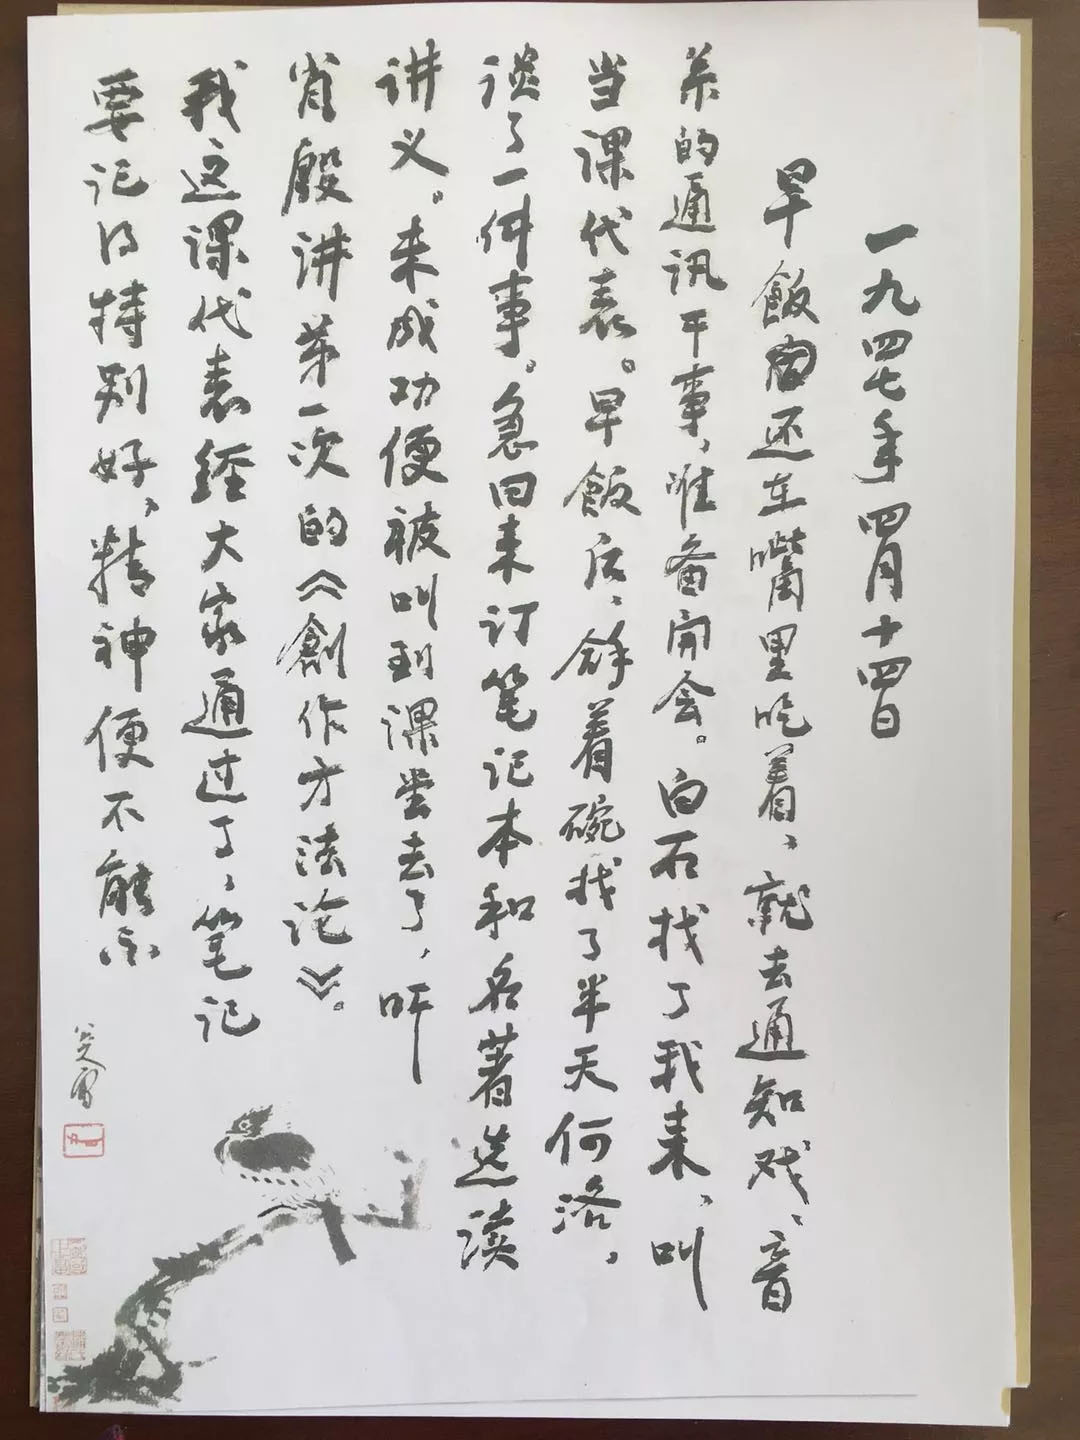 一九四七年四月十四日
早飯由还在嘴里吃着、就去通知戏、音
系的通讯干事，准备开会。白石找了我来，叫
当课代表。早飯后，我着碗找了半天何洛，
谈了一件事。急回来订笔记本和名著选读
讲义。未成功便被叫到课堂去了，听
肖殷讲第一次的《創作方法论》。
我这课代表经大家通过了，笔记
要记得特别好，精神便不能不